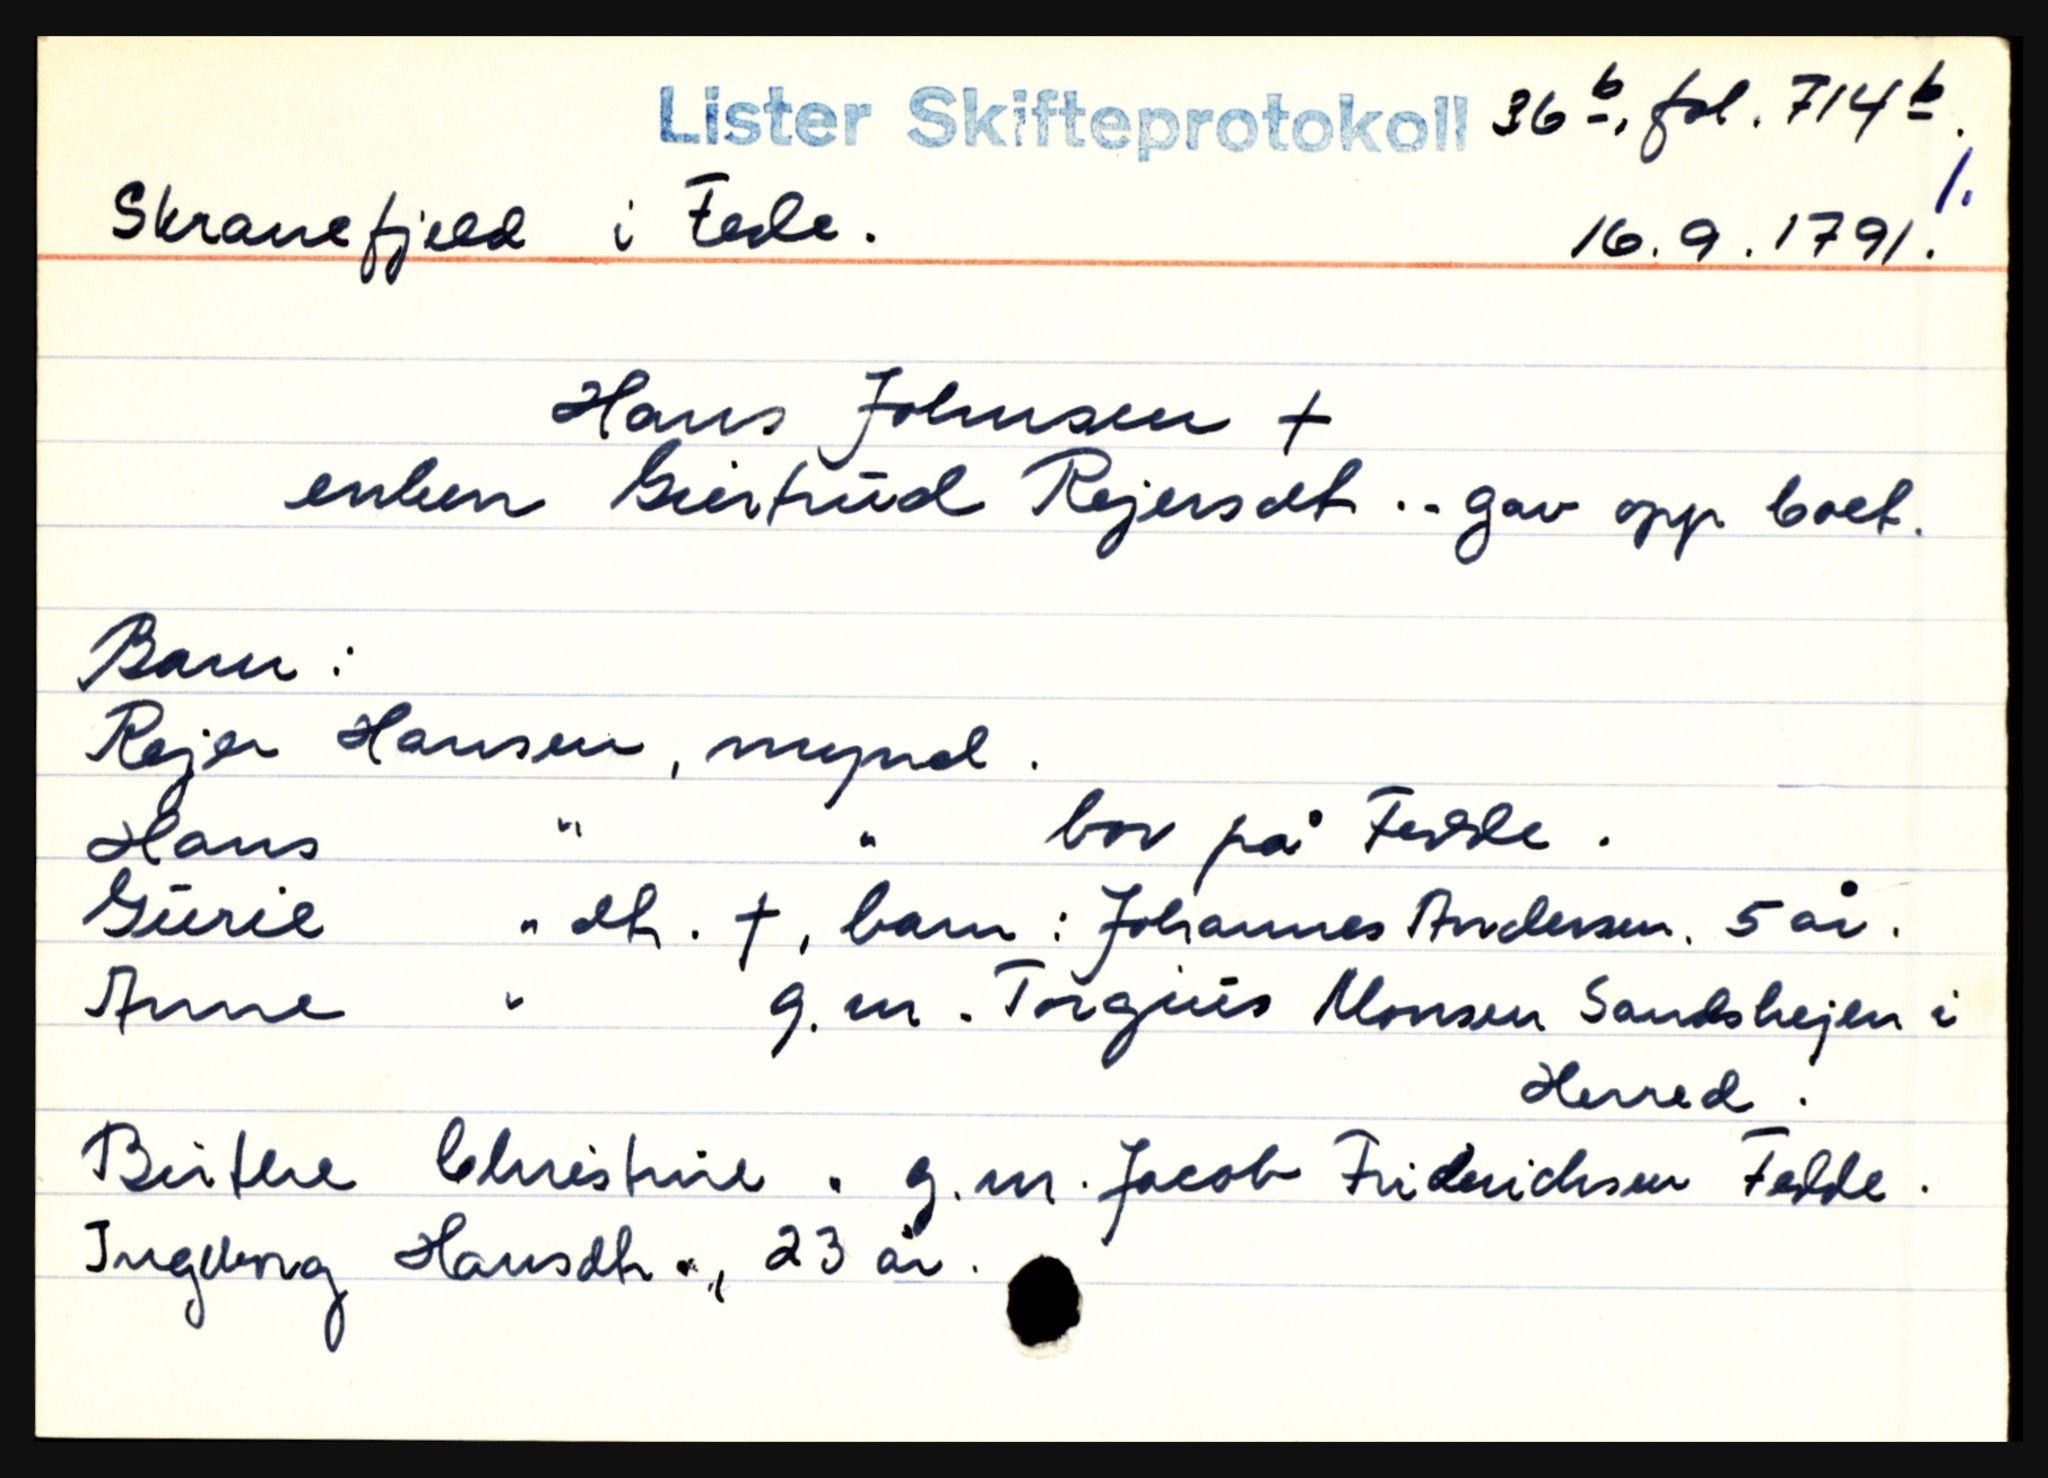 Lister Skifteprotokoll 36 b, fol. 714 b.
1.
Skranefjeld i Fede. 16.9.1791.
Hans Johnsen +
enken Giertrūd Rejersdt .. gav opp boet.
Barn :
Rejer Hansen, mynd.
Hans " " bor på Fedde.
Gūrie " dtr. +, barn : Johannes Andersen. 5 år.
Anne " g.m. Torgiūs Monsen Sandshejen i
Herred.
Birthe Christine " g.m. Jacob Friderichsen Fedde.
Ingeborg Hansdtr. ", 23 år.